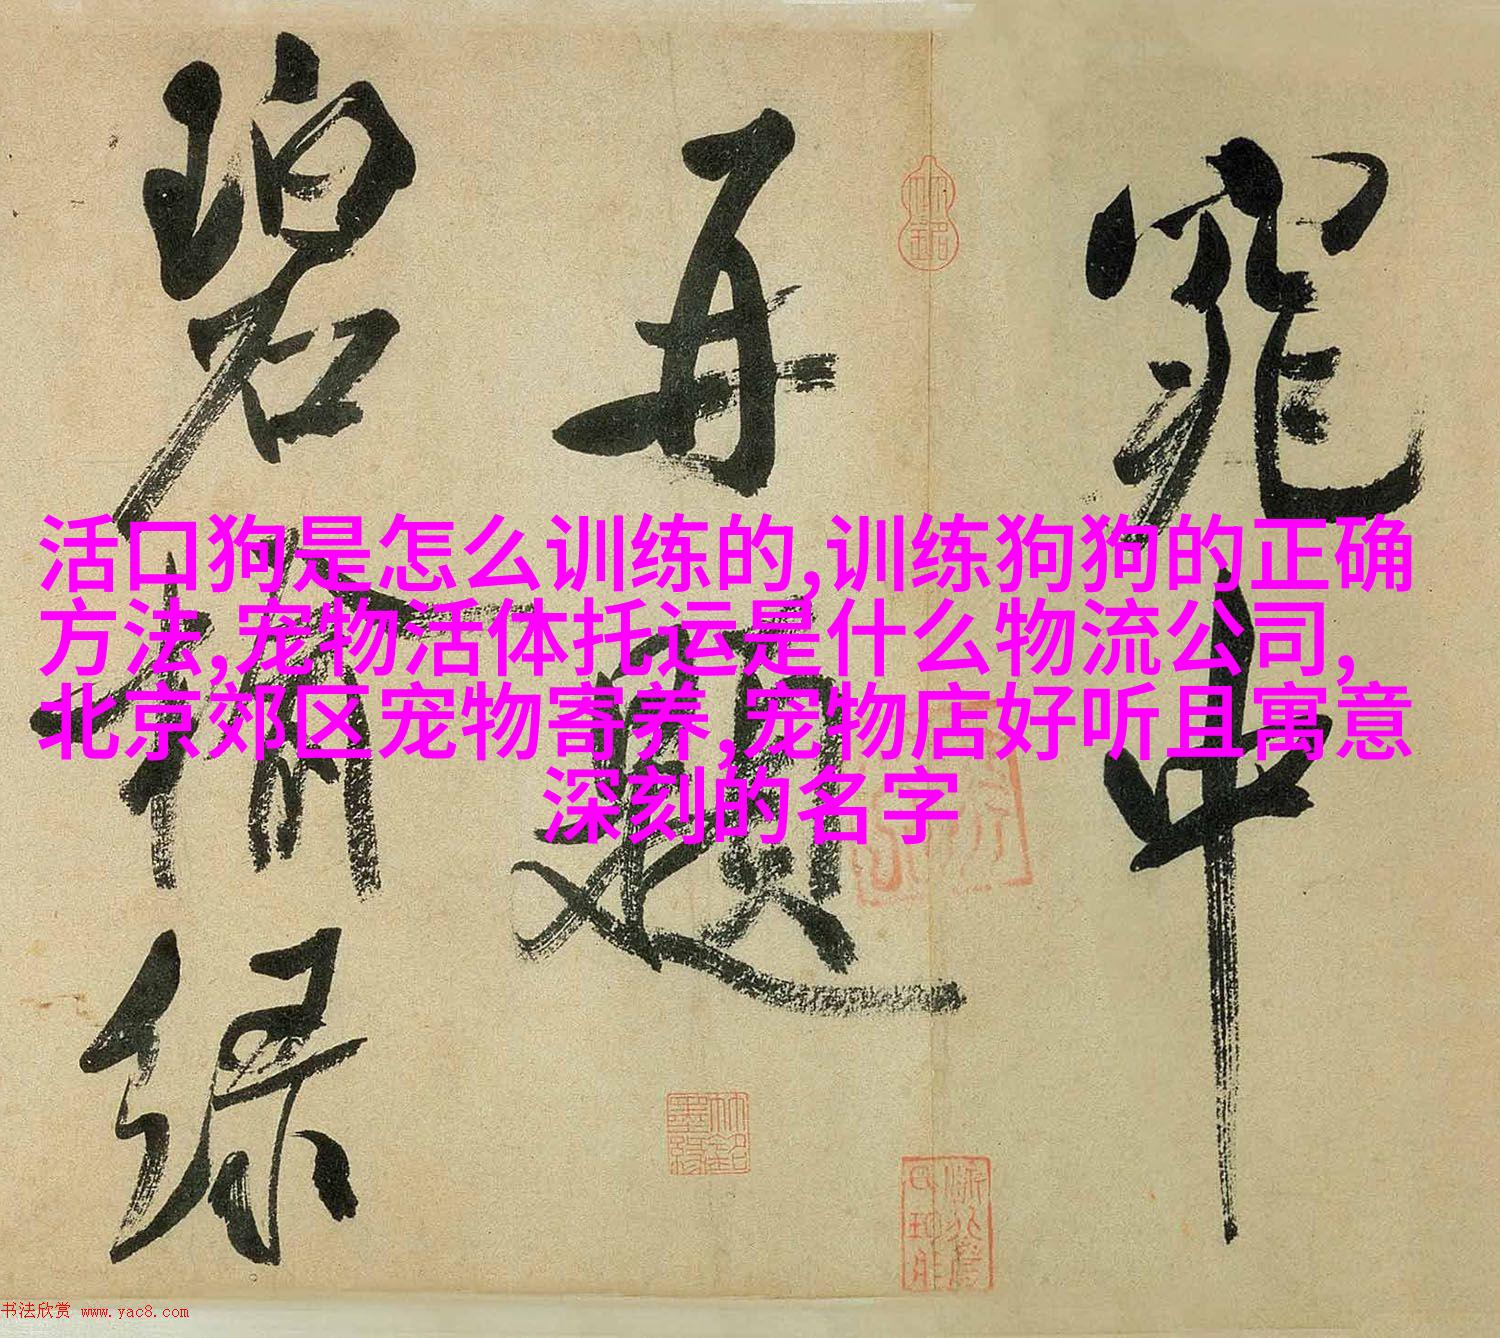 窕中
再题
碧榆绿
活口狗是怎么训练的,训练狗狗的正确
方法,宠物活体托运是什么物流公司,
北京郊区宠物寄养,宠物店好听且寓意
深刻的名字
书法欣赏 www.yac8.com